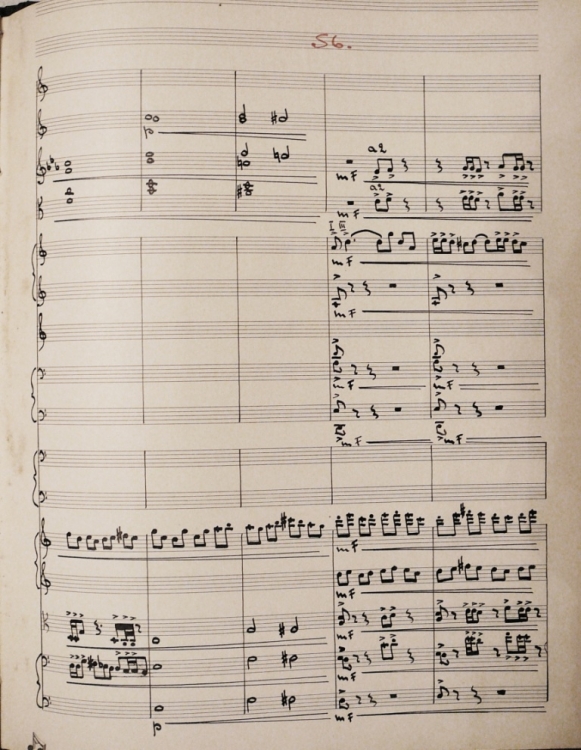 56.
a2
mF
a2
mF
I III
mF
mF
mF mF
mF mF
mF
mF
mF
mF
mF